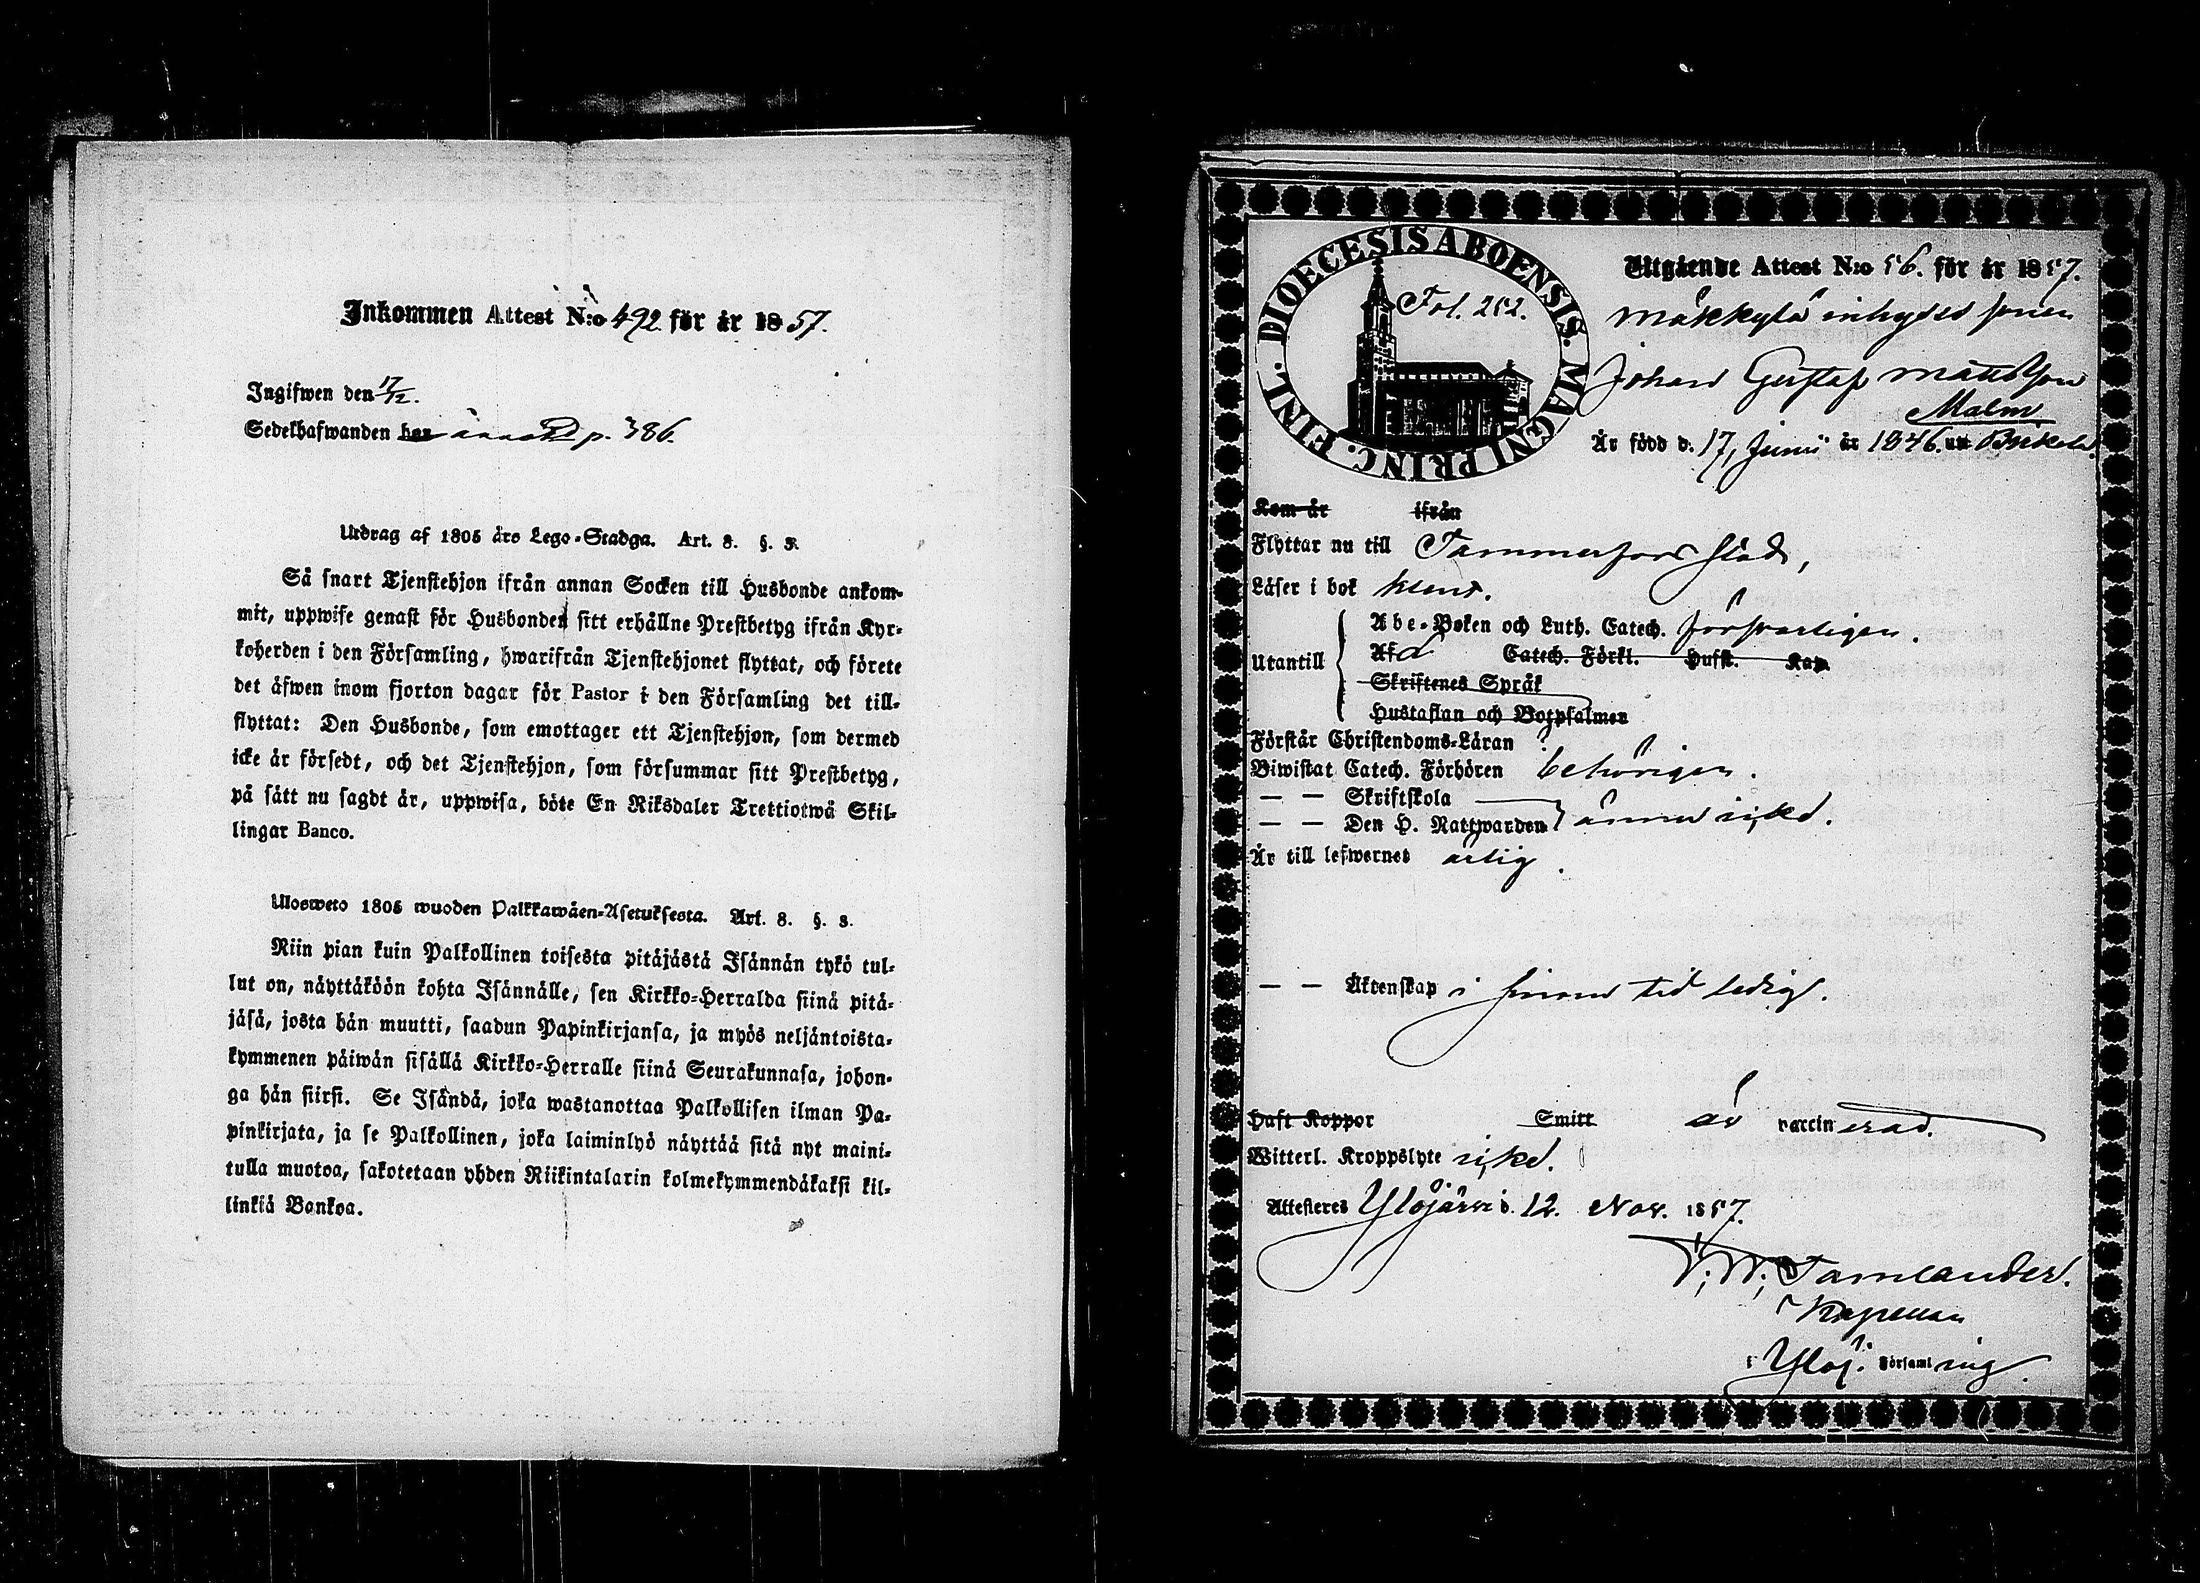 Inkommen Attest N:o 492 för år 1857.
Ingifwen den 17/12.
Sedelhafwanden har p. 386.
Utdrag af 1805 års Lego-Stadga. Art. 8. §. 3.
Så snart Tjenstehjon ifrån annan Socken till Husbonde ankom-
mit, uppwise genast för Husbonden sitt erhållne Prestbetyg ifrån Kyr-
koherden i den Församling, hwarifrån Tjenstehjonet flyttat, och förete
det äfwen inom fjorton dagar för Pastor i den Församling det till-
flyttat: Den Husbonde, som emottager ett Tjenstehjon, som dermed
icke är försedt, och det Tjenstehjon, som försummar sitt Prestbetyg,
på sätt nu sagdt är, uppwisa, böte En Riksdaler Trettiotwå Skil-
lingar Banco.
Ulosweto 1805 wuoden Palkkawäen-Asetuksesta. Art. 8. §. 3.
Niin pian kuin Palkollinen toisesta pitäjästä Isännän tykö tul-
lut on, näyttäköön kohta Isännälle, sen Kirkko-Herralda siinä pitä-
jäsä, josta hän muutti, saadun Papinkirjansa, ja myös neljäntoista-
kymmenen päiwän sisällä Kirkko-Herralle siinä Seurakunnasa, johon-
ga hän siirsi. Se Isändä, joka wastanottaa Palkollisen ilman Pa-
pinkirjata, ja se Palkollinen, joka laiminlyö näyttää sitä nyt maini-
tulla muotoa, sakotetaan yhden Riikintalarin kolmekymmendäkaksi kil-
linkiä Bankoa.
DIOECESIS ABOENSIS. MAGNI PRINC. FINL.
Fol. 252.
Utgående Attest N:o 56. för år 1857.
Mäkkylä inhyses sonen
Johan Gustaf Mattsson
Malm
Är född d. 17 Junii år 1846. uti
Kom år ifrån
Flyttar nu till Tammerfors stad,
Läser i bok klent.
Utantill Abc-Boken och Luth. Catech. försvarligen.
Af Catech. Förkl. Husst. Kap.
Skriftenes Språk
Hustaflan och Botpsalmer
Förstår Christendoms-Läran
Biwistat Catech. Förhören behörigen.
— — Skriftskola
— — Den H. Nattwarden ännu icke.
Är till lefwernet ärlig.
— — Äktenskap i sinom tid ledig.
Haft Koppor Smitt är vaccinerad.
Witterl. Kroppslyte icke.
Attesteres Ylöjärvi d. 12. Nov. 1857.
V. W. Tamlander.
Kapellan
i Ylöj. Församling.